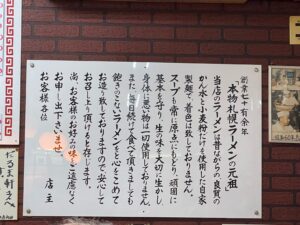 創業七十有余年
「本物札幌ラーメンの元祖」
当店のラーメンは昔ながらの良質の
かん水と小麦粉だけを使用した自家
製麺で着色は致しておりません。
スープも常に原点にもどり、頑固に
基本を守り、生の味を大切に生かし
身体に悪い物は一切使用しておりません。
また、毎日続けて食べて頂きましても
飽きのこないラーメンを心をこめて
お造り致しておりますので安心して
お召し上り頂けると存じます。
尚、お客様のお好みの味もご遠慮なく
お申し出下さいませ
お客様各位
店主